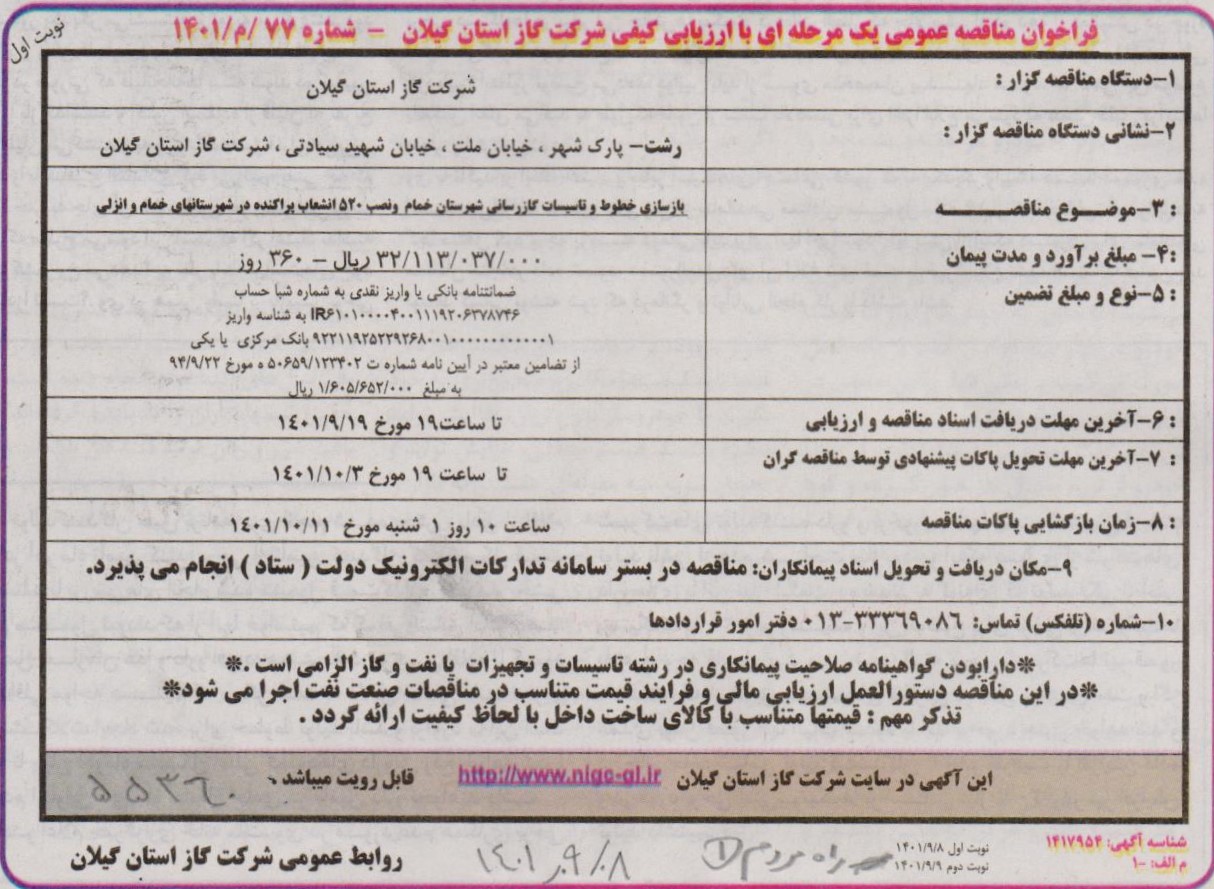 فراخوان مناقصه عمومی یک مرحله ای با ارزیابی کیفی شرکت گاز استان گیلان - شماره ۷۷ /م/۱۴۰۱
نوبت اول
۱-دستگاه مناقصه گزار :
شرکت گاز استان گیلان
۲-نشانی دستگاه مناقصه گزار :
رشت- پارک شهر، خیابان ملت ، خیابان شهید سیادتی ، شرکت گاز استان گیلان
۳-موضوع مناقصه :
بازسازی خطوط و تاسیسات گازرسانی شهرستان خمام ونصب ۵۲۰ انشعاب پراکنده در شهرستانهای خمام و انزلی
۴- مبلغ برآورد و مدت پیمان :
۳۲/۱۱۳/۰۳۷/۰۰۰ ریال – ۳۶۰ روز
۵-نوع و مبلغ تضمین :
ضمانتنامه بانکی یا واریز نقدی به شماره شبا حساب
IR۶۱۰۱۰۰۰۰۴۰۰۱۱۱۹۲۰۶۳۷۸۷۴۶ به شناسه واریز
بانک مرکزی یا یکی
از تضامین معتبر در آیین نامه شماره ت ۵۰۶۵۹/۱۲۳۴۰۲ ه مورخ ۹۴/۹/۲۲
به مبلغ ۱/۶۰۵/۶۵۲/۰۰۰ ریال
۶-آخرین مهلت دریافت اسناد مناقصه و ارزیابی :
تا ساعت۱۹ مورخ ۱۴۰۱/۹/۱۹
۷-آخرین مهلت تحویل پاکات پیشنهادی توسط مناقصه گران :
تا ساعت ۱۹ مورخ ۱۴۰۱/۱۰/۳
۸-زمان بازگشایی پاکات مناقصه :
ساعت ۱۰ روز ۱ شنبه مورخ ۱۴۰۱/۱۰/۱۱
۹-مکان دریافت و تحویل اسناد پیمانکاران: مناقصه در بستر سامانه تدارکات الکترونیک دولت ( ستاد ) انجام می پذیرد.
۱۰-شماره (تلفکس) تماس: ۳۳۳۶۹۰۸۶-۰۱۳ دفتر امور قراردادها
*دارابودن گواهینامه صلاحیت پیمانکاری در رشته تاسیسات و تجهیزات یا نفت و گاز الزامی است .*
*در این مناقصه دستورالعمل ارزیابی مالی و فرایند قیمت متناسب در مناقصات صنعت نفت اجرا می شود*
تذکر مهم : قیمتها متناسب با کالای ساخت داخل با لحاظ کیفیت ارائه گردد .
این آگهی در سایت شرکت گاز استان گیلان http://www.nigc-gl.ir قابل رویت میباشد .
۵۵۳۶
شناسه آگهی: ۱۴۱۷۹۵۴
م الف: ۱۰۰
نوبت اول ۱۴۰۱/۹/۸
نوبت دوم ۱۴۰۱/۹/۹
راه مردم ①
۱۴۰۱/۹/۰۸
روابط عمومی شرکت گاز استان گیلان